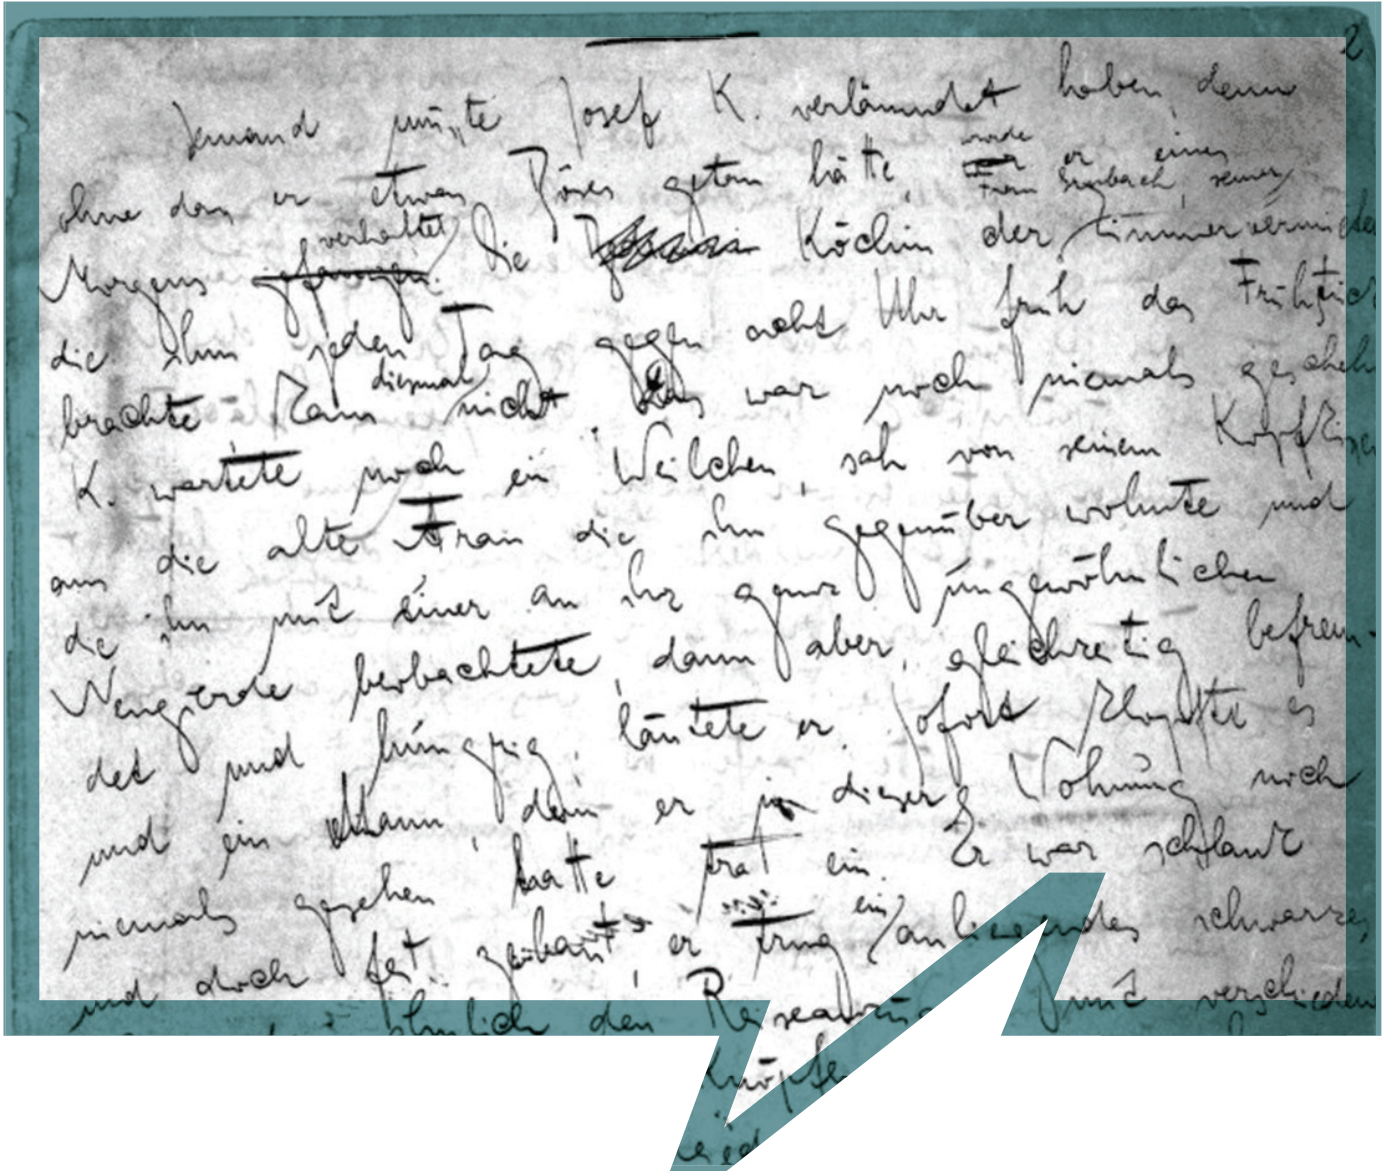 2
Jemand mußte Josef K. verläumdet haben, denn
ohne daß er etwas Böses getan hätte, war wurde er eines
Frau Grubach, seiner,
Morgens gefangen verhaftet. Die Köchin der Zimmervermiete
die ihm jeden Tag gegen acht Uhr früh das Frühstück
brachte kam diesmal nicht. Das war noch niemals gescheh
K. wartete noch ein Weilchen, sah von seinem Kopfkissen
aus die alte Frau die ihm gegenüber wohnte und
die ihn mit einer an ihr ganz ungewöhnlichen
Neugierde beobachtete, dann aber, gleichzeitig befrem-
det und hungrig, läutete er. Sofort klopfte es
und ein Mann, den er in dieser Wohnung noch
niemals gesehen hatte trat ein. Er war schlank
und doch fest gebaut, er trug ein anliegendes schwarzes
ähnlich den Reiseanzü mit verschieden
Knöpfe